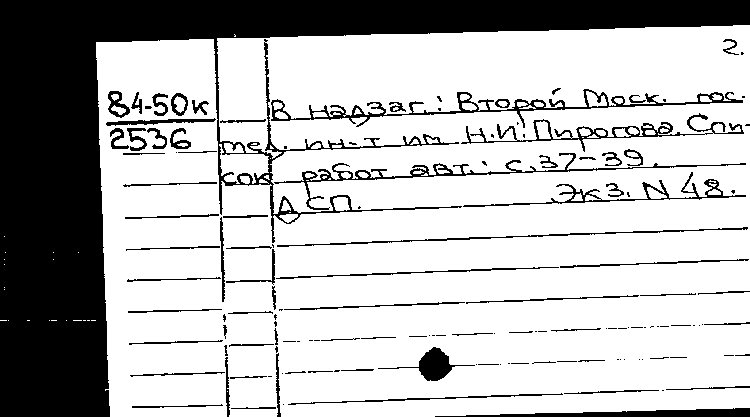 2.
84-50к
2536
В надзаг.: Второй Моск. гос.
мед. ин-т им. Н.И. Пирогова. Спи-
сок работ авт.: с. 37-39.
ДСП. Экз. N 48.